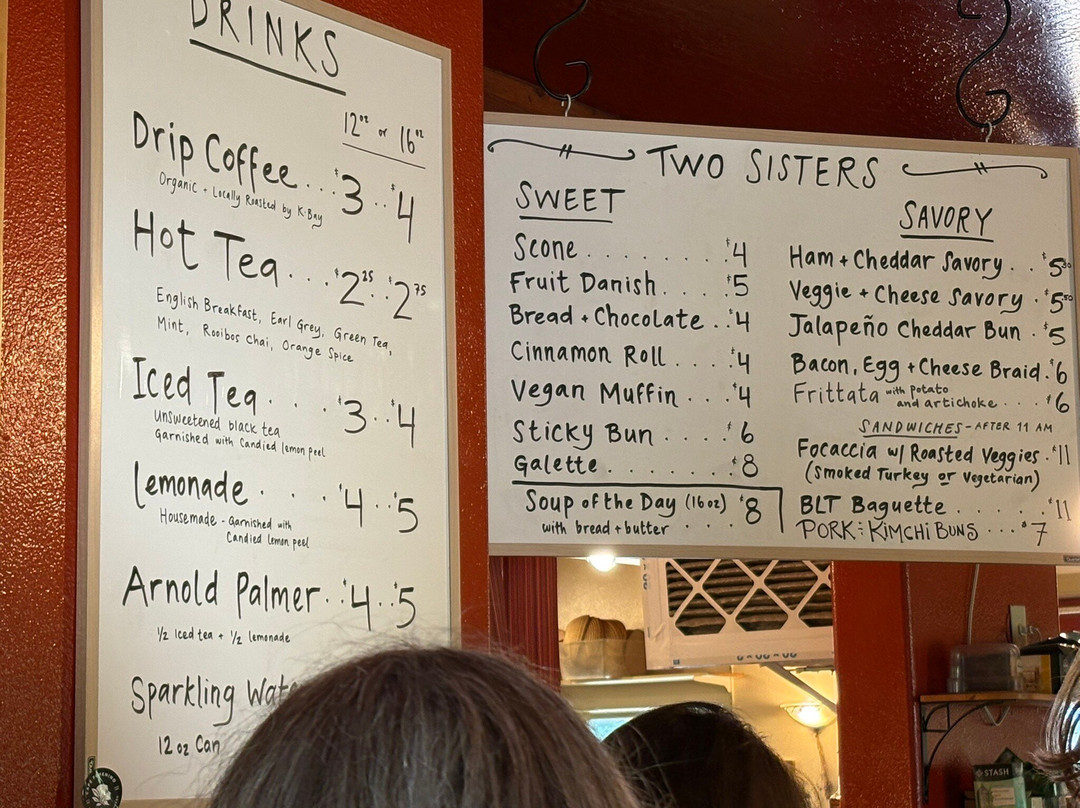 DRINKS
12oz or 16oz
Drip Coffee... $3.. $4
Organic + Locally Roasted by K-Bay
Hot Tea... $2.25.. $2.75
English Breakfast, Earl Grey, Green Tea,
Mint, Rooibos Chai, Orange Spice
Iced Tea.... $3.. $4
Unsweetened black tea
Garnished with Candied lemon peel
Lemonade.... $4.. $5
Housemade - Garnished with
Candied lemon peel
Arnold Palmer.. $4.. $5
1/2 Iced tea + 1/2 lemonade
Sparkling
12 oz Can
TWO SISTERS
SWEET
Scone........ $4
Fruit Danish..... $5
Bread + Chocolate.. $4
Cinnamon Roll.... $4
Vegan Muffin... $4
Sticky Bun.... $6
Galette........ $8
Soup of the Day (16oz) $8
with bread + butter....
SAVORY
Ham + Cheddar Savory.. $5.50
Veggie + Cheese Savory. $5.50
Jalapeño Cheddar Bun. $5
Bacon, Egg + Cheese Braid. $6
Frittata with potato
and artichoke... $6
SANDWICHES - AFTER 11 AM
Focaccia w/ Roasted Veggies. $11
(Smoked Turkey or Vegetarian)
BLT Baguette...... $11
PORK + KIMCHI BUNS... $7
STASH